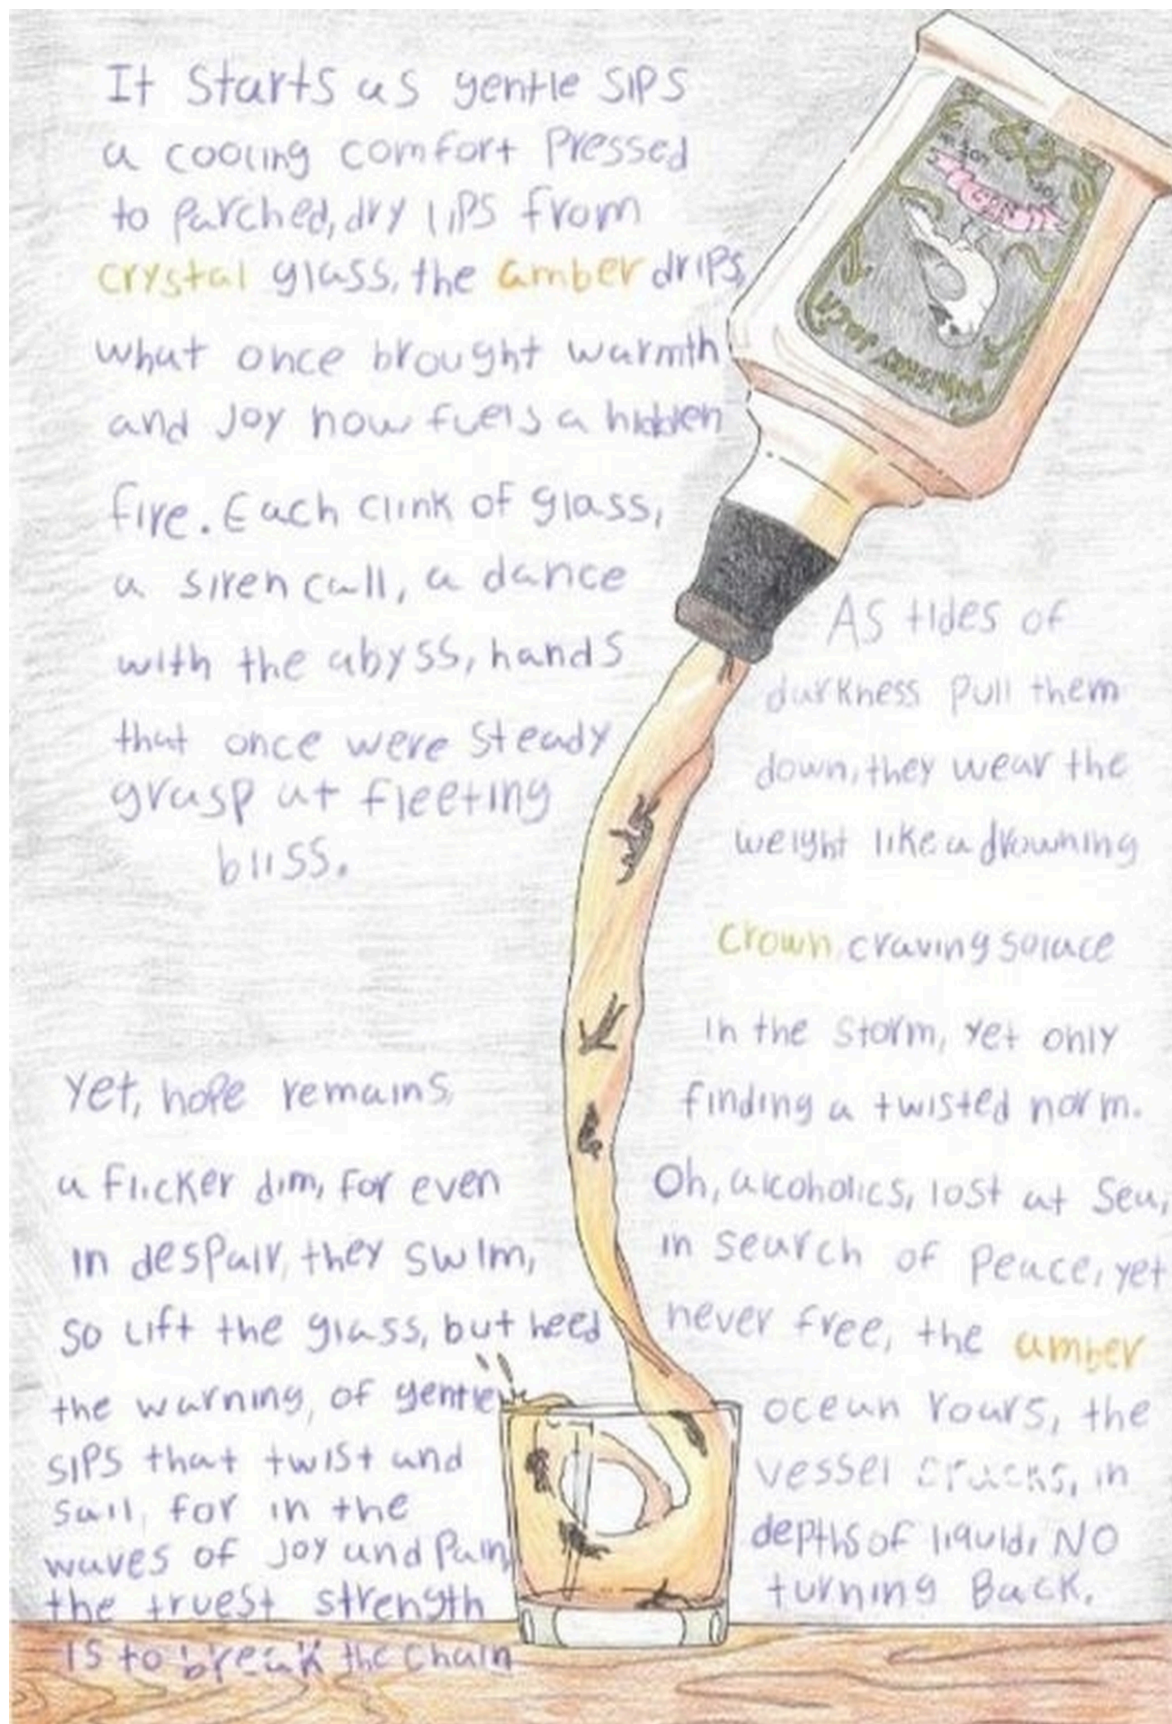 It starts as gentle sips
a cooling comfort pressed
to parched, dry lips from
crystal glass, the amber drips,
what once brought warmth
and joy now fuels a hidden
fire. Each clink of glass,
a siren call, a dance
with the abyss, hands
that once were steady
grasp at fleeting
bliss.
As tides of
darkness pull them
down, they wear the
weight like a drowning
crown craving solace
in the storm, yet only
finding a twisted norm.
Oh, alcoholics, lost at sea,
in search of peace, yet
never free, the amber
ocean roars, the
vessel cracks, in
depths of liquid, NO
turning Back.
yet, hope remains,
a flicker dim, for even
in despair, they swim,
so lift the glass, but heed
the warning, of gentle
sips that twist and
sail, for in the
waves of joy and pain,
the truest strength
is to break the chain